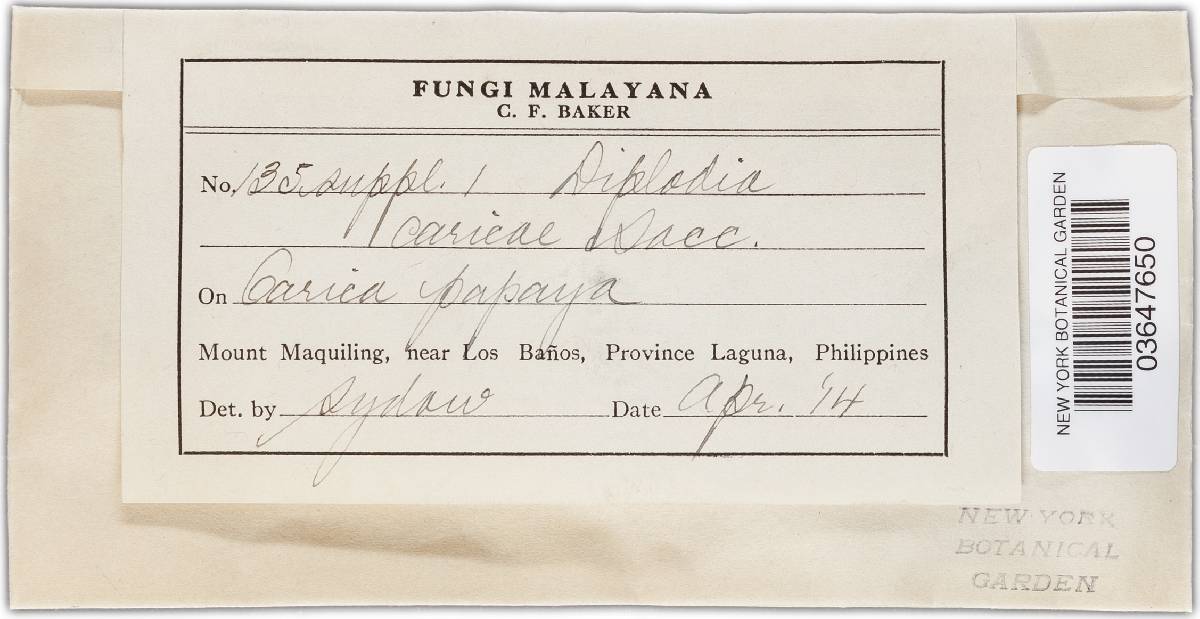 FUNGI MALAYANA
C. F. BAKER
No. 135 suppl. 1 Diplodia
caricae Sacc.
On Carica papaya
Mount Maquiling, near Los Baños, Province Laguna, Philippines
Det. by Sydow Date Apr. '14
NEW YORK BOTANICAL GARDEN
03647650
NEW YORK
BOTANICAL
GARDEN